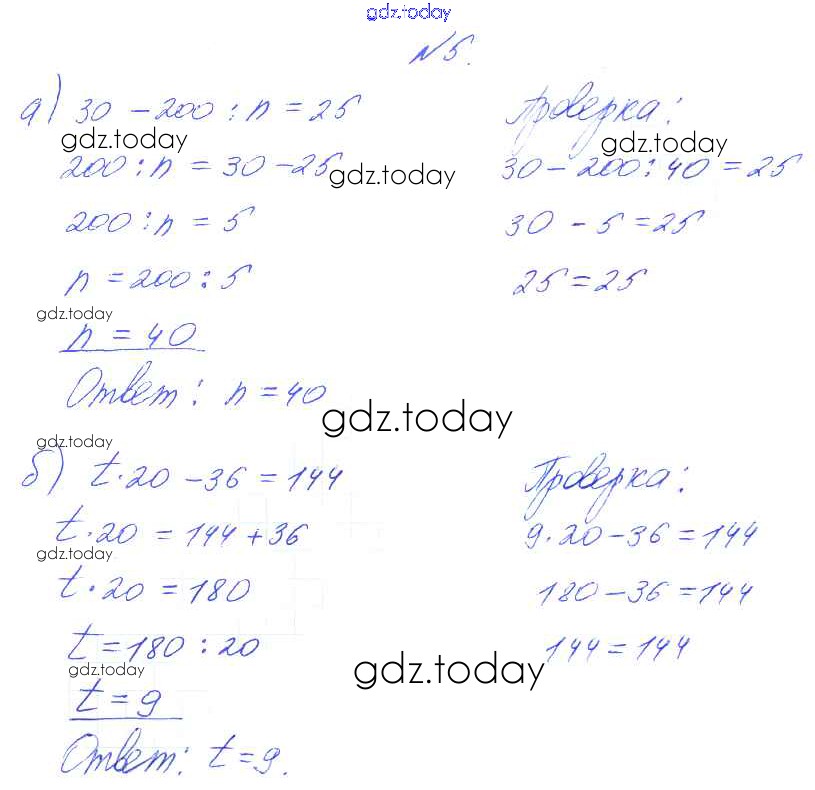 gdz.today
№5.
а) 30 - 200 : n = 25
gdz.today
200 : n = 30 - 25
gdz.today
200 : n = 5
n = 200 : 5
gdz.today
n = 40
Ответ: n = 40
Проверка:
gdz.today
30 - 200 : 40 = 25
30 - 5 = 25
25 = 25
gdz.today
gdz.today
б) t · 20 - 36 = 144
t · 20 = 144 + 36
gdz.today
t · 20 = 180
t = 180 : 20
gdz.today
t = 9
Ответ: t = 9.
Проверка:
9 · 20 - 36 = 144
180 - 36 = 144
144 = 144
gdz.today